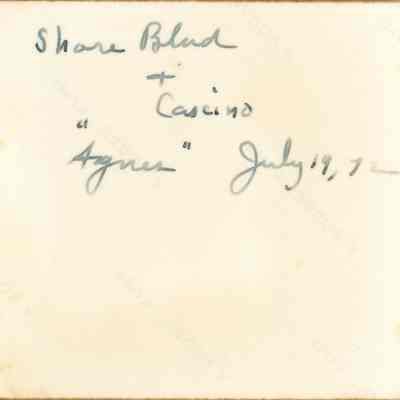 Shore Blvd
+
Cascino
"Agnes" July 19, 72